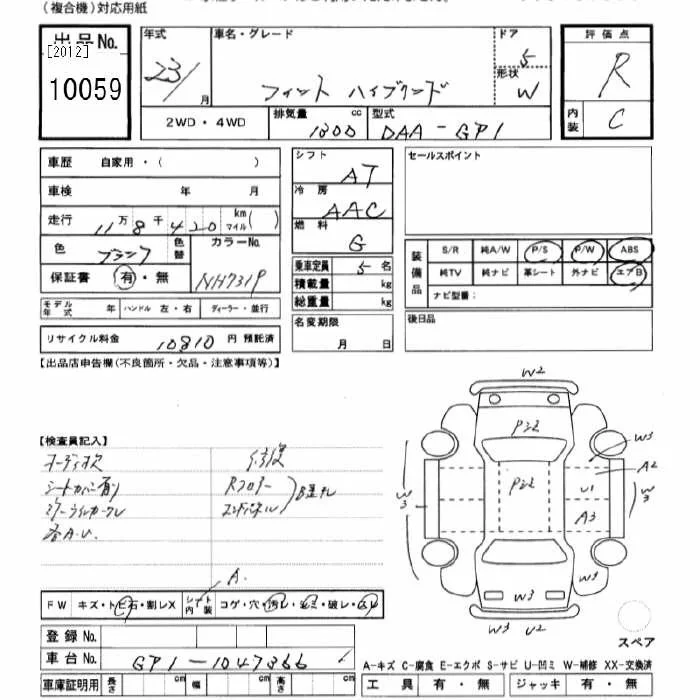 (複合機)対応用紙
出品No.
[2012]
10059
年式
23/
月
車名・グレード
フィット ハイブリッド
ドア
5
形状
W
評価点
R
内装
C
2WD・4WD
排気量
1300
cc
型式
DAA-GP1
車歴 自家用・( )
車検 年 月
走行 11万8千420 km マイル( )
色 ブラック 色替 カラーNo. NH731P
保証書 有・無
モデル年式 年 ハンドル 左・右 ディーラー・並行
リサイクル料金 10810 円 預託済
シフト
AT
冷房
AAC
燃料
G
乗車定員 5 名
積載量 kg
総重量 kg
名変期限
月 日
セールスポイント
装備品
S/R 純A/W P/S P/W ABS
純TV 純ナビ 革シート 外ナビ エアB
ナビ型番:
後日品
【出品店申告欄(不良箇所・欠品・注意事項等)】
【検査員記入】
オーディオ欠
修復
Rフロアー
エンドパネル
各A.U.
A.
FW キズ・トビ石・割レX シート内装 コゲ・穴・汚レ・キズ・破レ・スレ
登録No.
車台No. GP1-1047366
車庫証明用 長さ cm 幅 cm 高さ cm
W2
P22
W3
A2
P22
U1
W3
W3
A3
W3
W3
W3 U2
スペア
A-キズ C-腐食 E-エクボ S-サビ U-凹ミ W-補修 XX-交換済
工具 有・無 ジャッキ 有・無